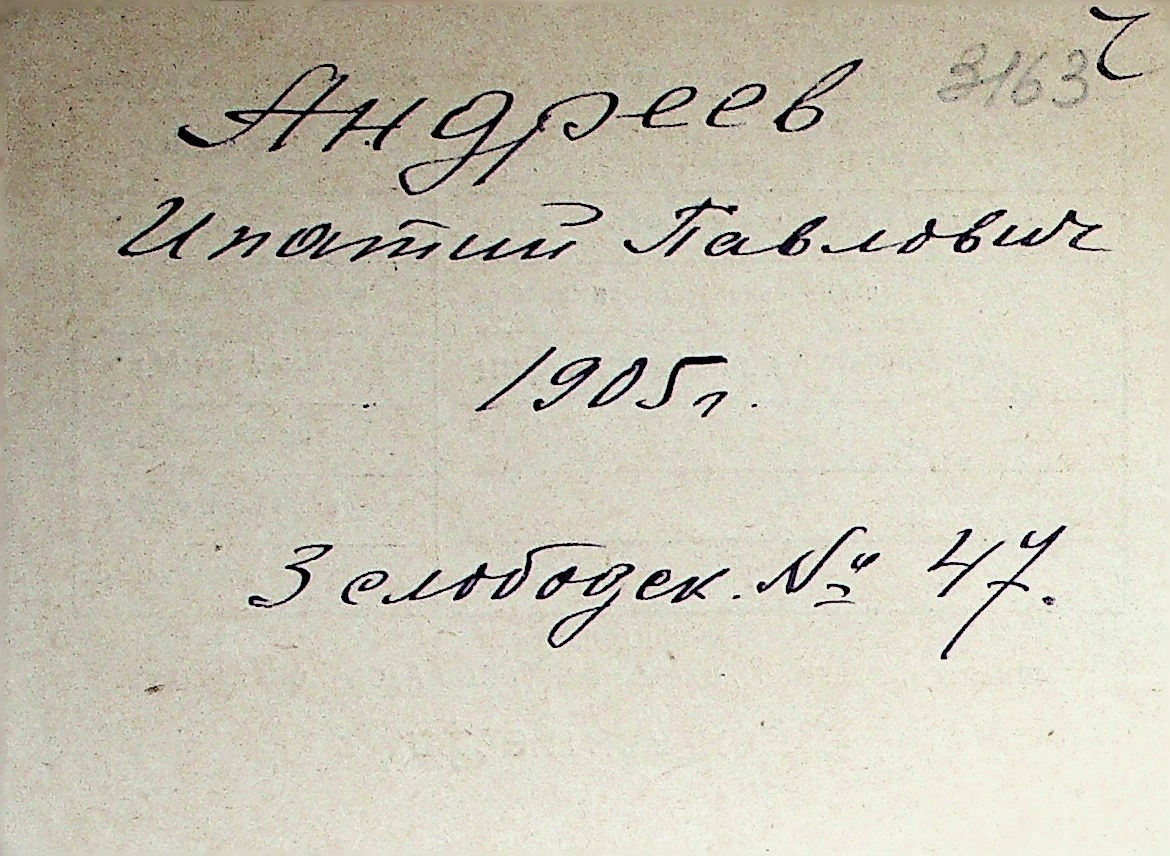 3163 Ч
Андреев
Ипатий Павлович
1905г.
3 слободск. № 47.